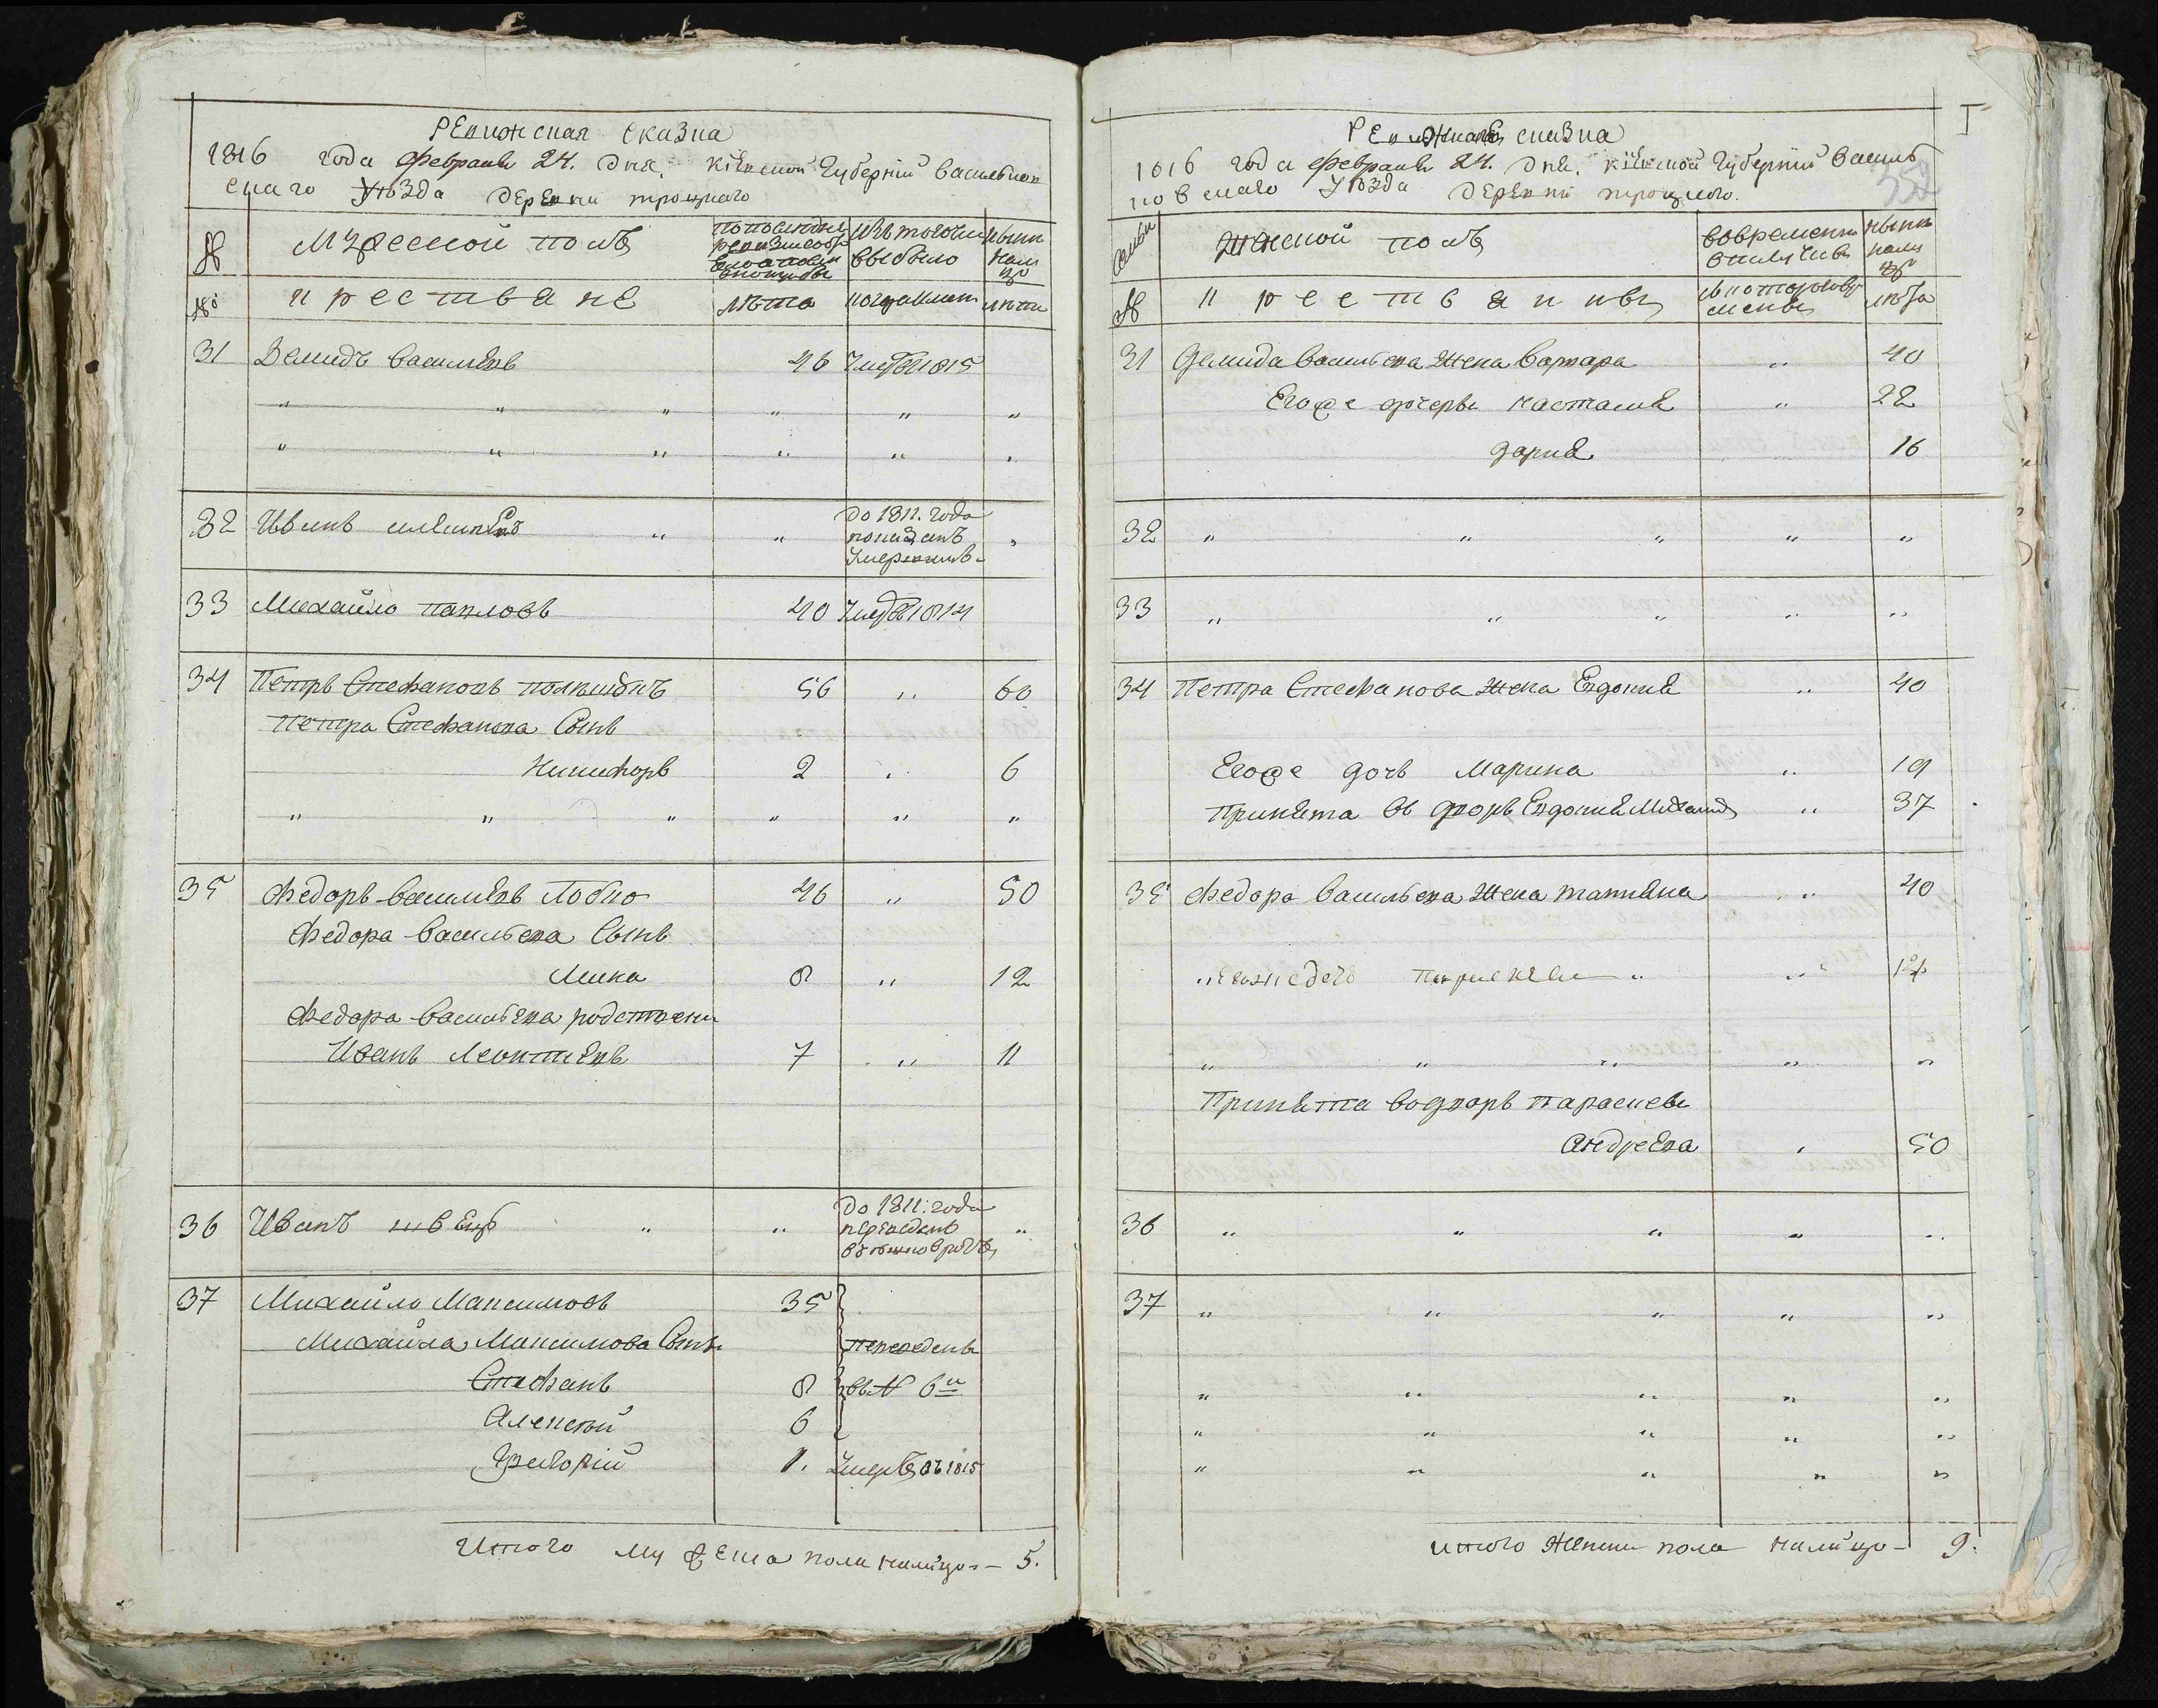 Ревижская сказка
1816 года февраля 24. дня. Кіевской Губерніи Васильков
скаго уѣзда деревни троцкаго
№ Мужеской полъ по последней ревизіи состояло изъ того числа выбыло нынѣ на лицо
№ крестьяне лѣта когда имянно лѣта
31 Демидъ васильевъ 46 Умеръ в 1815
" " " " " "
" " " " " "
32 Иванъ " " до 1811. года "
показанъ
умершимъ
33 Михайло павловъ 40 Умеръ в 1814
34 Петръ Стефановъ 56 " 60
петра Стефанова Сынъ
Никифоръ 2 " 6
" " " " " "
35 Федоръ васильевъ Лобко 46 " 50
Федора васильева Сынъ
Мина 8 " 12
Федора васильева родственн
Иванъ Леонтиевъ 7 " 11
36 Иванъ " " до 1811. года "
переведенъ
37 Михайло Максимовъ 35
Михайла Максимова Сынъ переведенъ
Стефанъ 8 въ № 6й
Алексей 6
Григорій 1. Умеръ въ 1815
Итого мужеска пола налицо — 5.
I
Ревижская сказка
1816 года февраля 24. дня. Кіевской Губерніи Василь
ковскаго уѣзда деревни троцкого.
352
семьи Женской полъ во временной отлучкѣ нынѣ на лицо
№ крестьянки съ котораго времени лѣта
31 Демида васильева жена варвара " 40
Егоже дочерьи настасия " 22
дария 16
32 " " " " "
33 " " " " "
34 Петра Стефанова жена Евдокия " 40
Егоже дочь Марина " 19
Принята въ дворъ Евдокия " 37
35 Федора васильева жена татияна " 40
" "
" " " " "
Принята во дворъ параскевы
андреева " 50
36 " " " " "
37 " " " " "
" " " " "
" " " " "
" " " " "
итого женска пола налицо — 9.